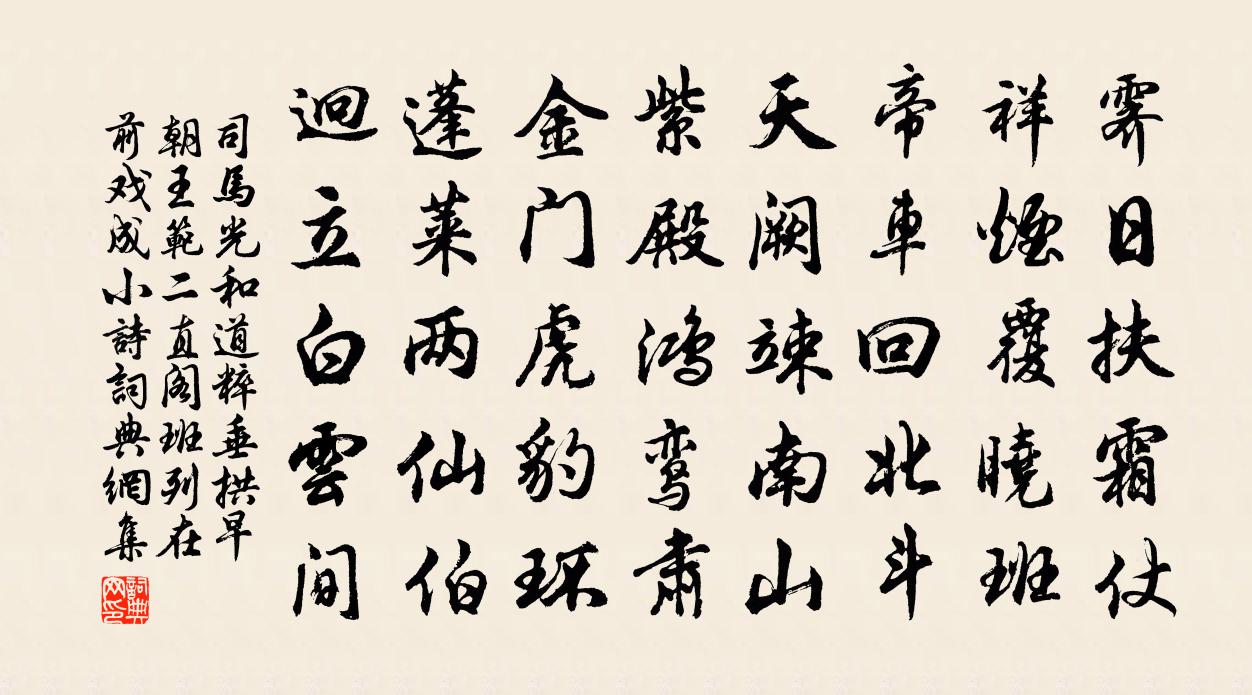 霁日扶霜仗
祥煙覆曉班
帝車回北斗
天阙竦南山
紫殿鸿鸾肅
金门虎豹环
蓬莱两仙伯
迥立白雲间
司馬光和道粹垂拱早
朝王範二直阁班列在
前戏成小詩詞典網集